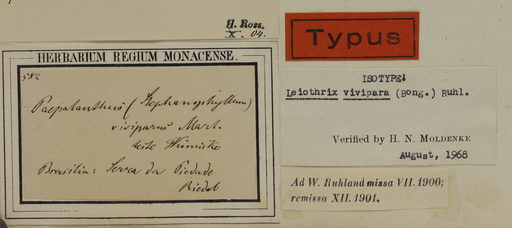 H. Ross.
X. 04.
HERBARIUM REGIUM MONACENSE.
582
Paepalanthus (Stephanophyllum)
viviparus Mart.
teste Körnicke
Brasilia: Serra da Piedade
Riedel
Typus
ISOTYPE!
Leiothrix vivipara (Bong.) Ruhl.
Verified by H. N. MOLDENKE
August, 1968
Ad W. Ruhland missa VII. 1900;
remissa XII. 1901.